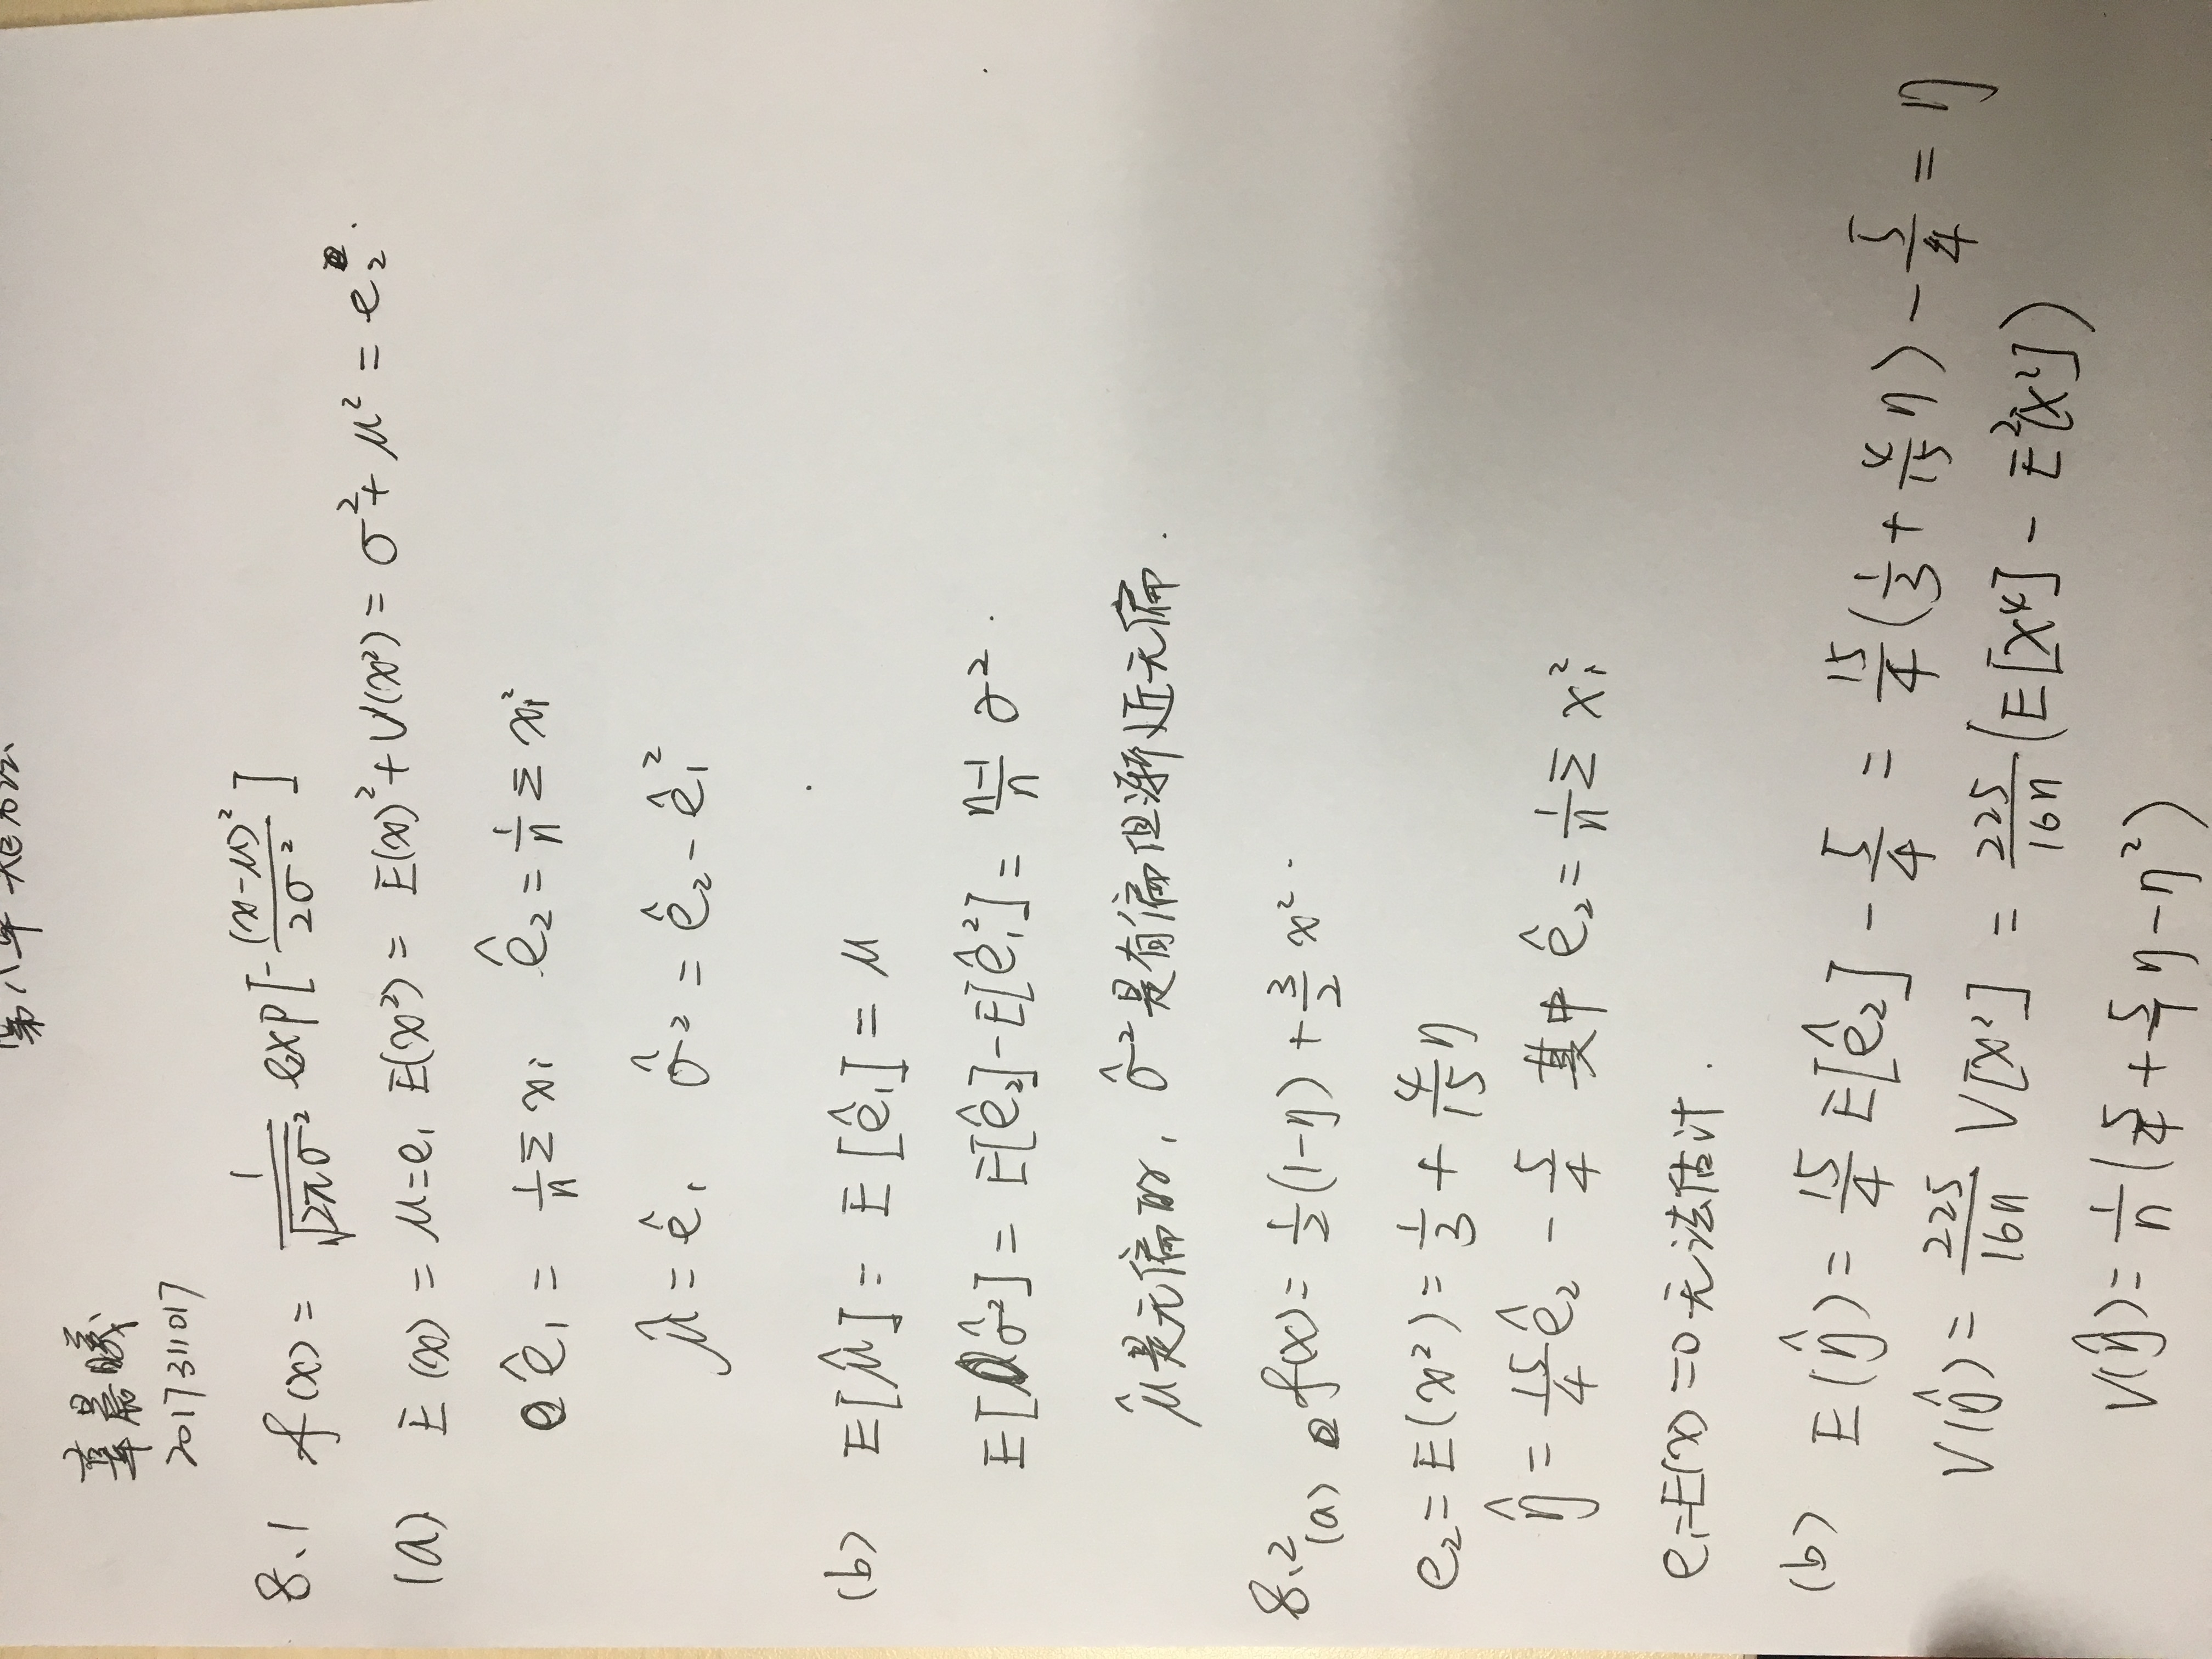 第八章 矩方法
辜晨曦
2017311017
8.1 f(x) = 1/√(2πσ²) exp[-(x-μ)²/2σ²]
(a) E(x) = μ = e₁ E(x²) = E(x)² + V(x²) = σ² + μ² = e₂.
ê₁ = 1/n Σ xᵢ ê₂ = 1/n Σ xᵢ²
μ̂ = ê₁ σ̂² = ê₂ - ê₁²
(b) E[μ̂] = E[ê₁] = μ
E[σ̂²] = E[ê₂] - E[ê₁²] = (n-1)/n σ².
μ̂是无偏的, σ̂²是有偏但渐近无偏.
8.2
(a) f(x) = 1/2(1-η) + 3/2 x².
e₂ = E(x²) = 1/3 + 4/15 η
η̂ = 15/4 ê₂ - 5/4 其中 ê₂ = 1/n Σ xᵢ²
e₁ = E(x) = 0 无法估计.
(b) E(η̂) = 15/4 E[ê₂] - 5/4 = 15/4(1/3 + 4/15 η) - 5/4 = η
V(η̂) = 225/16n V[x²] = 225/16n (E[x⁴] - E²[x²])
V(η̂) = 1/n (5/4 + 5/7 η - η²)